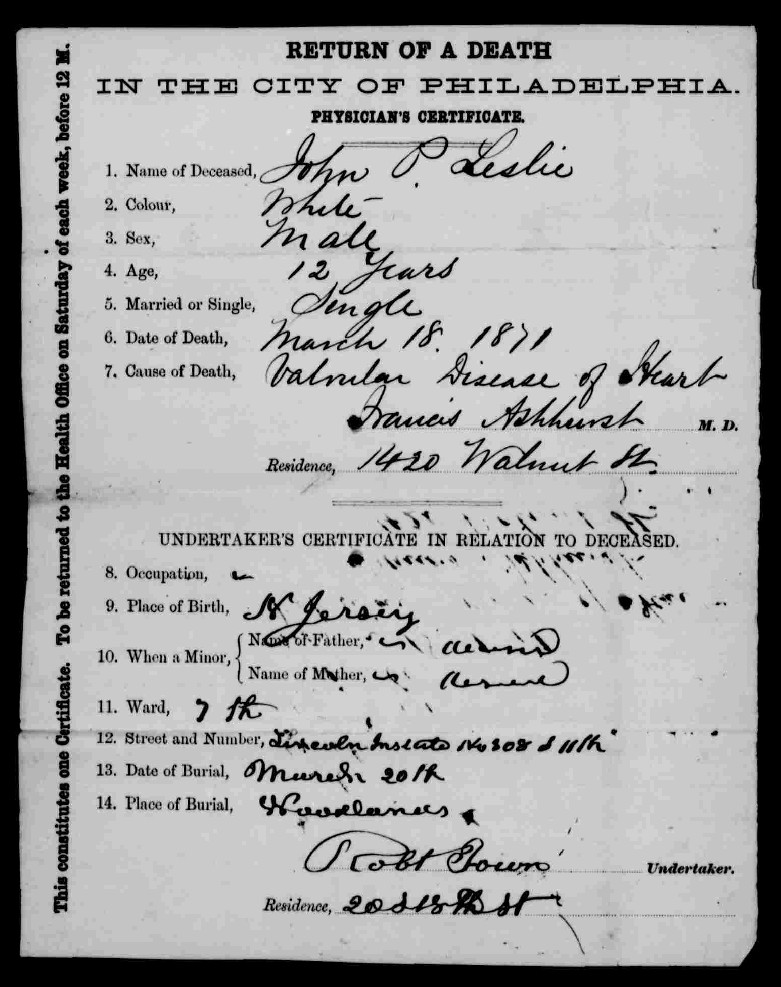 This constitutes one Certificate. To be returned to the Health Office on Saturday of each week, before 12 M.
RETURN OF A DEATH
IN THE CITY OF PHILADELPHIA.
PHYSICIAN'S CERTIFICATE.
1. Name of Deceased, John P. Leslie
2. Colour, White
3. Sex, Male
4. Age, 12 Years
5. Married or Single, Single
6. Date of Death, March 18. 1871
7. Cause of Death, Valvular Disease of Heart
Francis Ashhurst M. D.
Residence, 1420 Walnut St.
UNDERTAKER'S CERTIFICATE IN RELATION TO DECEASED.
8. Occupation,
9. Place of Birth, N Jersey
10. When a Minor,
Name of Father,
Name of Mother,
11. Ward, 7 th
12. Street and Number, Lincoln No 308 S 11th
13. Date of Burial, March 20th
14. Place of Burial, Woodlands
Robt Undertaker.
Residence, St